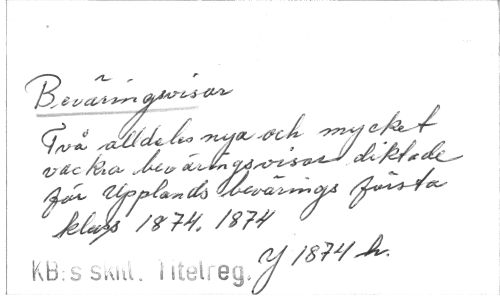 Beväringsvisor
Två alldeles nya och mycket
vackra beväringsvisor diktade
för Upplands bevärings första
klass 1874. 1874
Y 1874 h.
KB:s skill. Titelreg.